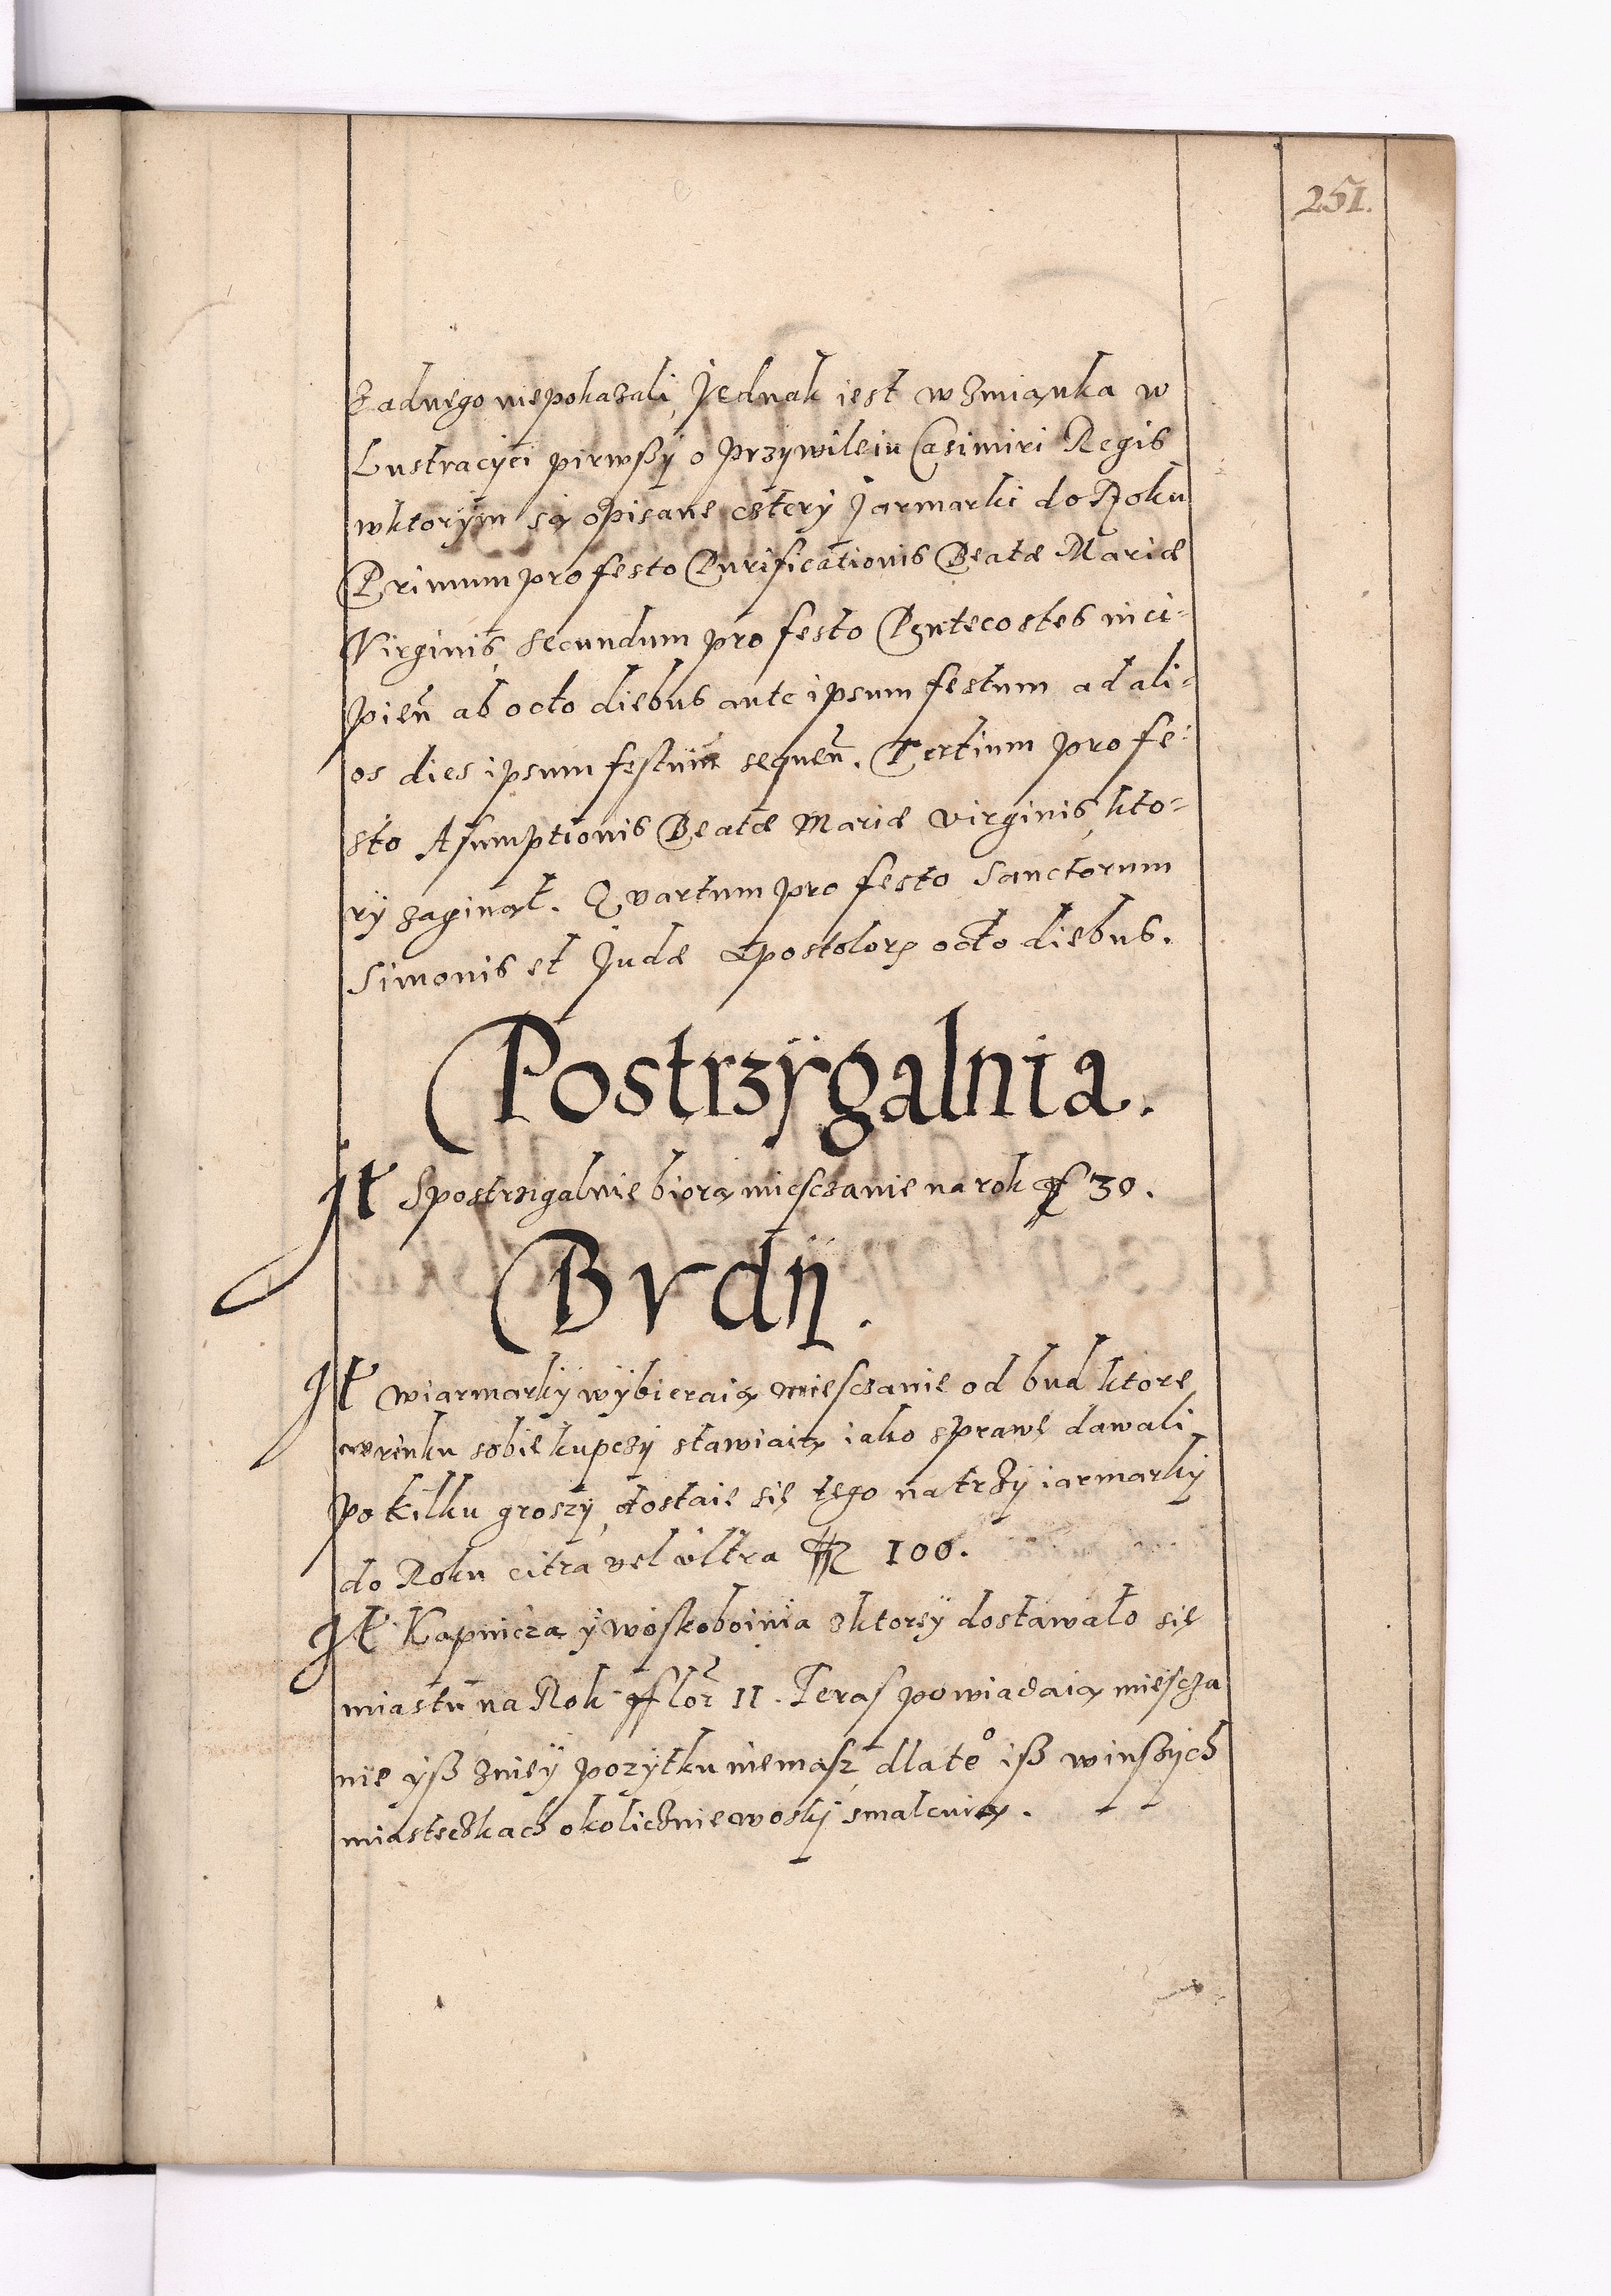 251.
Żadnego niepokazali, Jednak iest wzmianka w
Lustracyei pirwßÿ o Przywileiu Casimiri Regis
wktorÿm są opisane cztery Jarmarki do Roku
Primum pro festo Purificationis Beatæ Mariæ
Virginis, Secundum pro festo Pentecostes inci-
pien̄ ab octo diebus ante ipsum festum ad ali-
os dies ipsum festum sequen̄. Tertium pro fe-
sto Assumptionis Beatæ Mariæ virginis, kto-
rÿ zaginął. Qvartum pro festo Sanctorum
Simonis et Judæ Apostolorꝝ octo diebus.
Postrzÿgalnia.
Jt Spostrzigalnie biorą miesczanie na rok f 30.
Bvdÿ.
Jt wiarmarkÿ wÿbieraią miesczanie od bud ktore
wrinku sobie kupczÿ stawiaią iako sprawę dawali
po kilku groszÿ, dostaie się tego na trzÿ iarmarkÿ
do Roku citra vel ultra 100.
Jt Kapnicza ÿ woskoboinia zktoreÿ dostawało się
miastu na Rok flor 11. Teras powiadaią miescza
nie ÿß znieÿ pozÿtku niemasz, dlate° iß winßÿch
miasteczkach okolicznie woskÿ smalcuią.